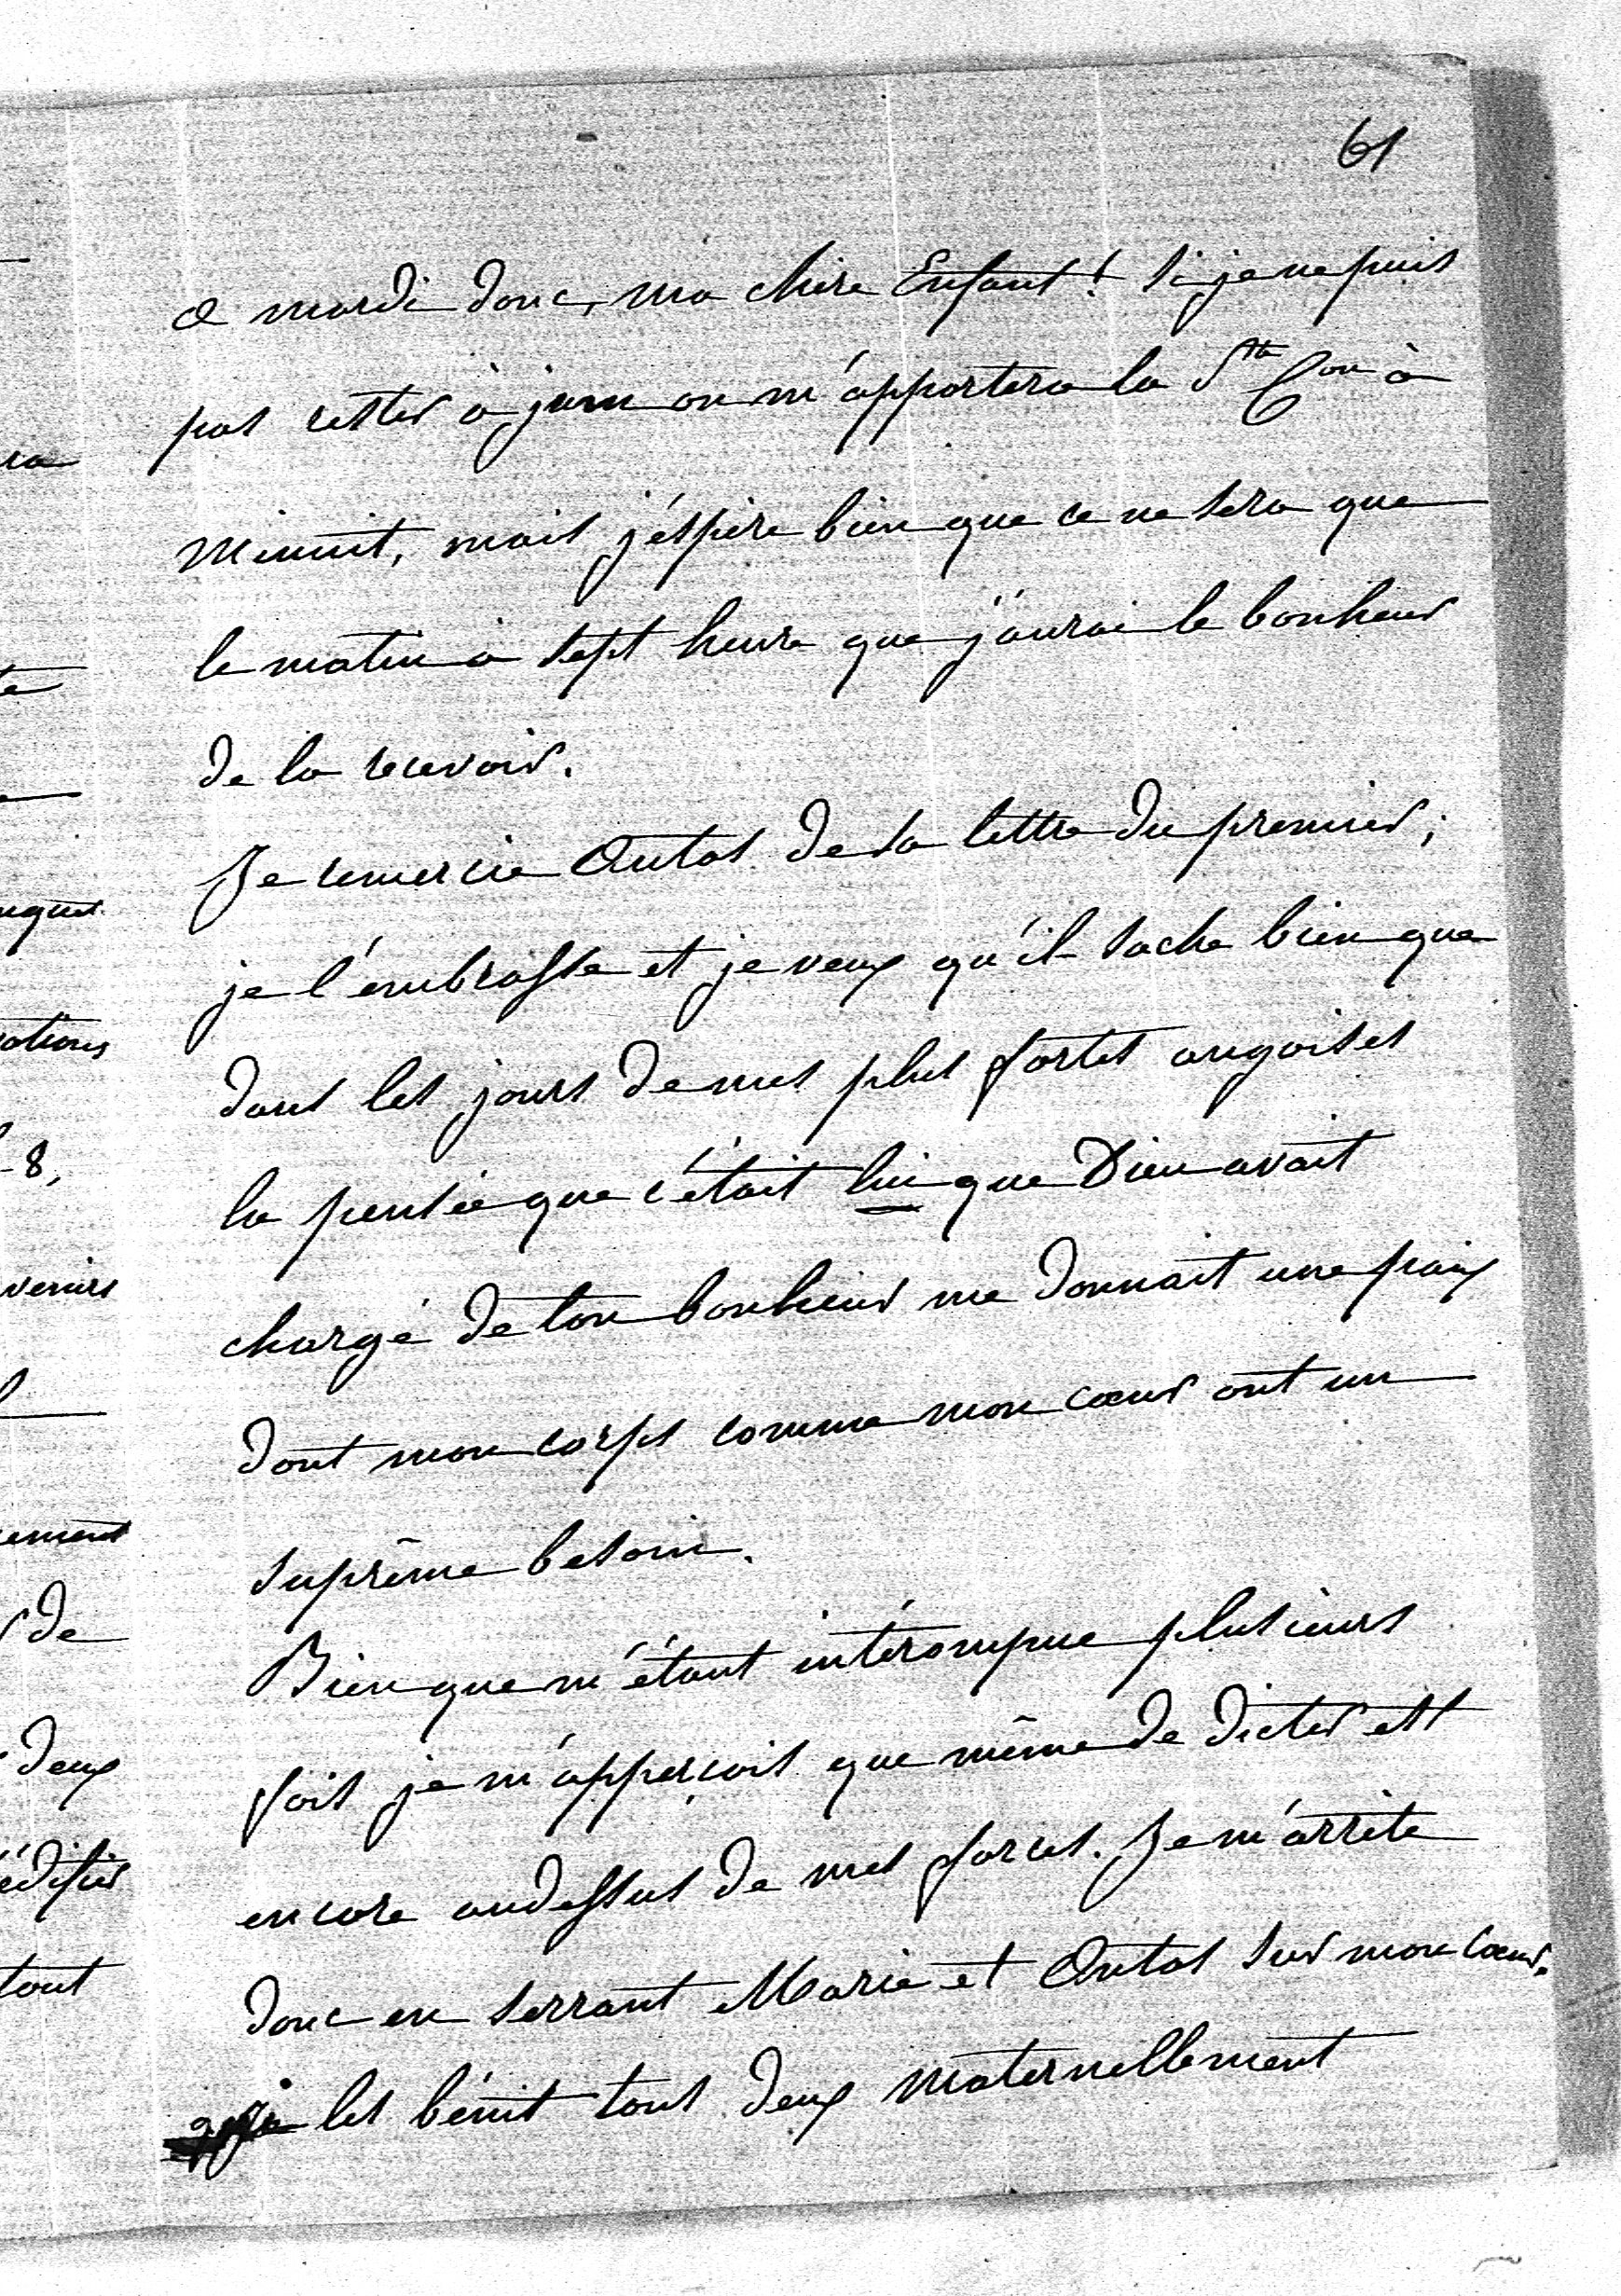 61
a mardi donc, ma chère Enfant! si je ne puis
pas rester à jeun on m'apportera la Ste Con à
minuit, mais j'éspère bien que ce ne sera que
le matin à sept heure que j'aurai le bonheur
de la recevoir.
Je remercie Antas de sa lettre du premier;
je l'embrasse et je veux qu'il sache bien que
dans les jours de mes plus fortes angoises
la pensée que c'était lui que Dieu avait
chargé de ton bonheur me donnait une paix
dont mon corps comme mon cœur ont un
suprême besoin.
Bien que m'étant intérompue plusieurs
fois je m'apperçois que même de dicter est
encore audessus de mes forces. Je m'arrête
donc en serrant Marie et Antas sur mon cœur.
je les bénit tous deux maternellement
ra
te
-8,
venirs
ement
de
deux
édifier
tout